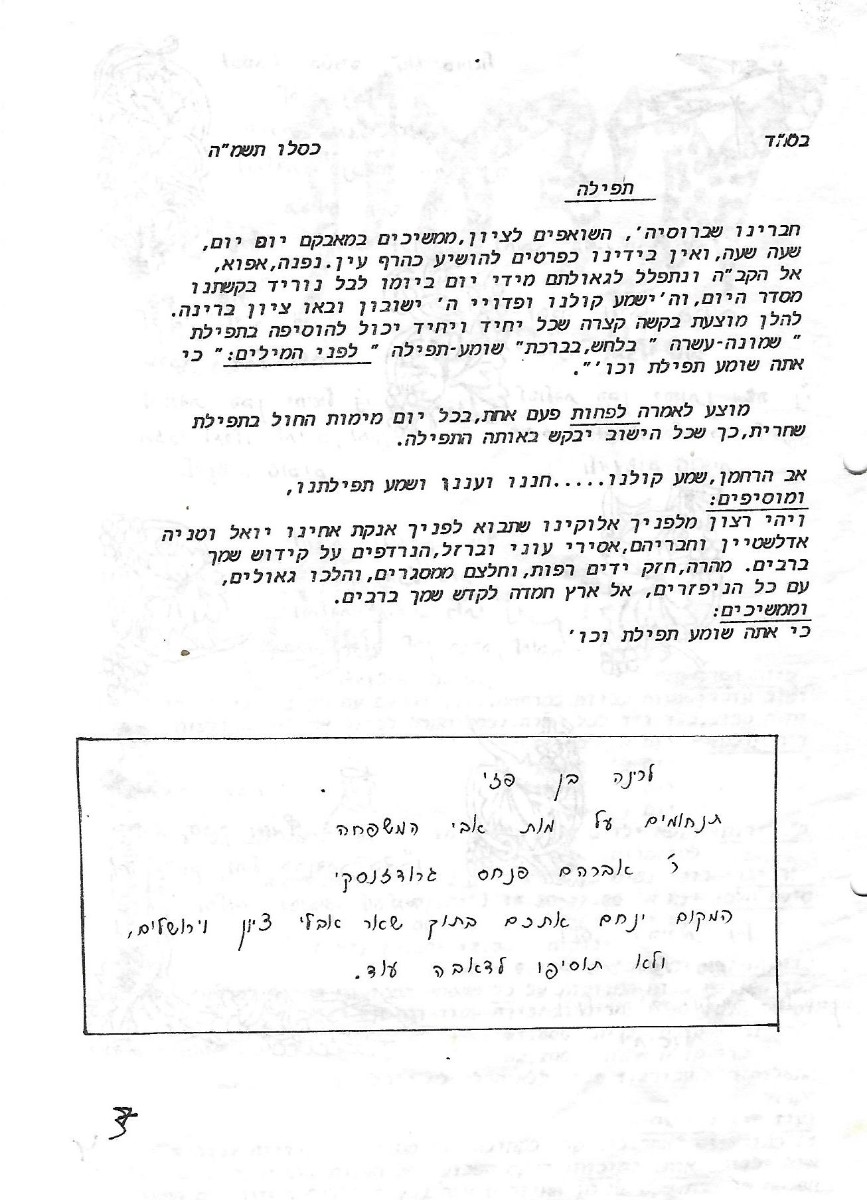 בס"ד
כסלו תשמ"ה
תפילה
חברינו שברוסיה', השואפים לציון,ממשיכים במאבקם יום יום,
שעה שעה,ואין בידינו כפרטים להושיע כהרף עין.נפנה,אפוא,
אל הקב"ה ונתפלל לגאולתם מידי יום ביומו לבל נוריד בקשתנו
מסדר היום,וה'ישמע קולנו ופדויי ה' ישובון ובאו ציון ברינה.
להלן מוצעת בקשה קצרה שכל יחיד ויחיד יכול להוסיפה בתפילת
" שמונה-עשרה " בלחש,בברכת" שומע-תפילה " לפני המילים:" כי
אתה שומע תפילת וכו'".
מוצע לאמרה לפחות פעם אחת,בכל יום מימות החול בתפילת
שחרית,כך שכל הישוב יבקש באותה התפילה.
אב הרחמן,שמע קולנו.....חננו ועננו ושמע תפילתנו,
ומוסיפים:
ויהי רצון מלפניך אלוקינו שתבוא לפניך אנקת אחינו יואל וטניה
אדלשטיין וחבריהם,אסירי עוני וברזל,הנרדפים על קידוש שמך
ברבים. מהרה,חזק ידים רפות,וחלצם ממסגרים,והלכו גאולים,
עם כל הניפזרים, אל ארץ חמדה לקדש שמך ברבים.
וממשיכים:
כי אתה שומע תפילת וכו'
לרינה בן פזי
תנחומים על מות אבי המשפחה
ר' אברהם פנחס גרודזנסקי
המקום ינחם אתכם בתוך שאר אבלי ציון וירושלים,
ולא תוסיפו לדאבה עוד.